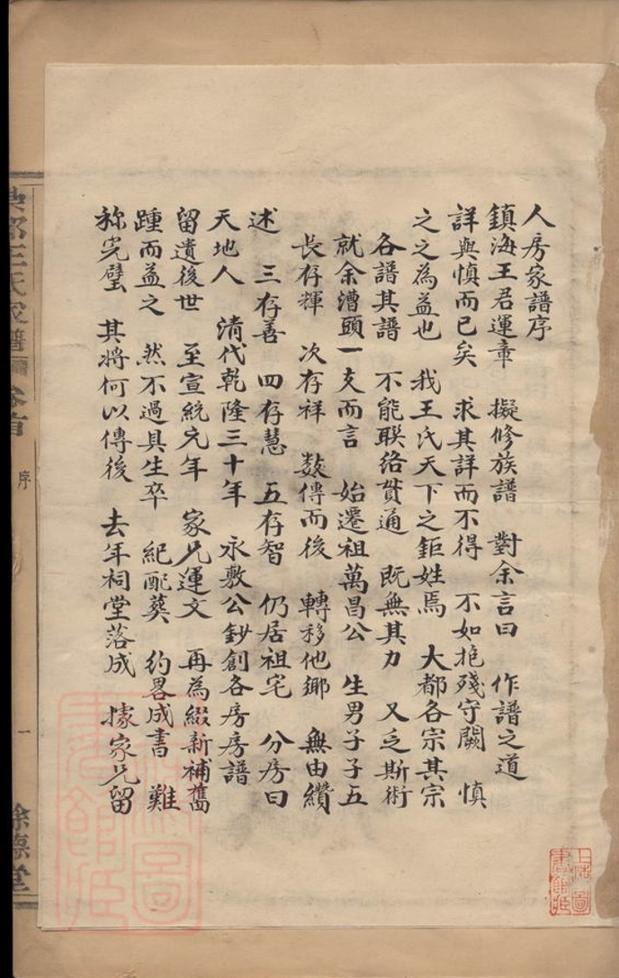 人房家譜序
鎮海王君運章　擬修族譜　對余言曰　作譜之道
詳與慎而已矣　求其詳而不得　不如抱殘守闕　慎
之之為益也　我王氏天下之鉅姓焉　大都各宗其宗
各譜其譜　不能聯絡貫通　既無其力　又乏斯術
就余漕頭一支而言　始遷祖萬昌公　生男子子五
長存輝　次存祥　數傳而後　轉移他鄉　無由纘
述　三存善　四存慧　五存智　仍居祖宅　分房曰
天地人　清代乾隆三十年　永敷公鈔創各房房譜
留遺後世　至宣統元年　家兄運文　再為綴新補舊
踵而益之　然不過具生卒　紀配葬　約畧成書　難
称完璧　其將何以傳後　去年祠堂落成　據家兄留
王氏家譜
卷首
序
一
餘德堂
上海圖書館藏